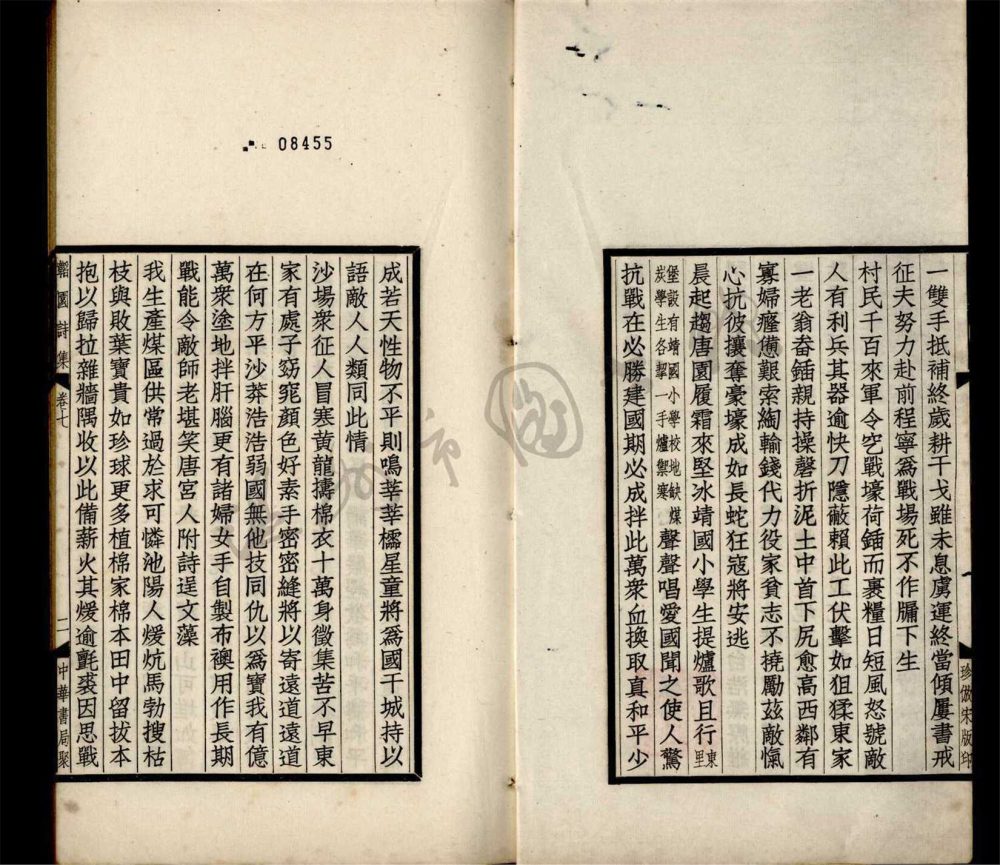 一雙手抵補終歲耕干戈雖未息虜運終當傾屢書戒
征夫努力赴前程寧爲戰場死不作牖下生
村民千百來軍令空戰壕荷鍤而裹糧日短風怒號敵
人有利兵其器逾快刀隱蔽賴此工伏擊如狙猱東家
一老翁畚鍤親持操磬折泥土中首下尻愈高西鄰有
寡婦癃憊艱索綯輸錢代力役家貧志不撓勵茲敵愾
心抗彼攘奪豪壕成如長蛇狂寇將安逃
晨起趨唐園履霜來堅冰靖國小學生提爐歌且行東里
堡設有靖國小學校地缺煤
炭學生各挈一手爐禦寒
聲聲唱愛國聞之使人驚
抗戰在必勝建國期必成拌此萬衆血換取真和平少
珍倣宋版印
08455
成若天性物不平則鳴莘莘櫺星童將爲國干城持以
語敵人人類同此情
沙場衆征人冒寒黃龍擣棉衣十萬身徵集苦不早東
家有處子窈窕顏色好素手密密縫將以寄遠道遠道
在何方平沙莽浩浩弱國無他技同仇以爲寶我有億
萬衆塗地拌肝腦更有諸婦女手自製布襖用作長期
戰能令敵師老堪笑唐宮人附詩逞文藻
我生產煤區供常過於求可憐池陽人煖炕馬勃搜枯
枝與敗葉寶貴如珍球更多植棉家棉本田中留拔本
抱以歸拉雜牆隅收以此備薪火其煖逾氈裘因思戰
園詩集
卷七
二
中華書局聚